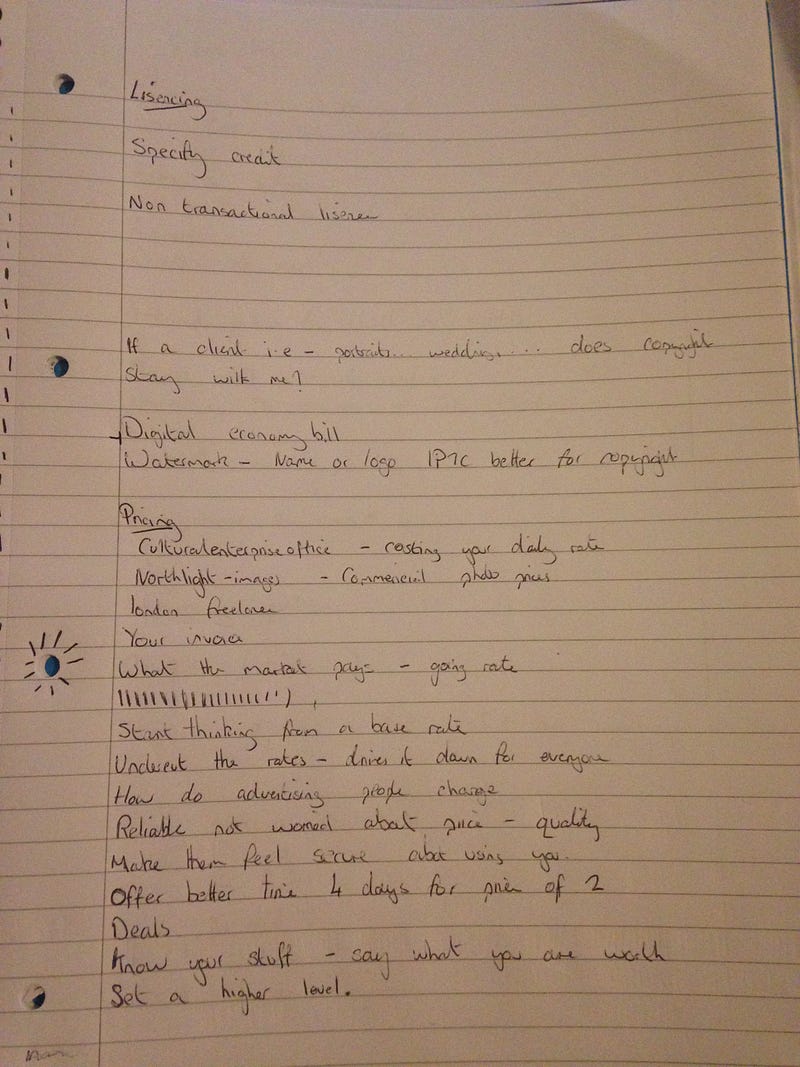 Lisencing
Specify credit
Non transactional lisence
If a client i.e - portraits... weddings.... does copyright
stay with me?
Digital economy bill
Watermark - Name or logo IPTC better for copyright
Pricing
Culturalenterpriseoffice - costing your daily rate
Northlight-images - Commericial photo prices
london freelance
Your invoice
What the market pays - going rate
Start thinking from a base rate
Undercut the rates - drives it down for everyone
How do advertising people charge
Reliable not worried about price - quality
Make them feel secure about using you.
Offer better time 4 days for price of 2
Deals
Know your stuff - say what you are worth
Set a higher level.